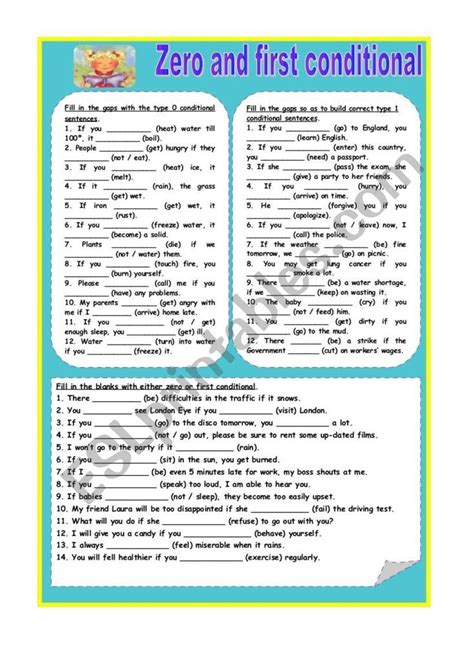 Zero and first conditional
Fill in the gaps with the type 0 conditional
sentences.
1. If you ________ (heat) water till
100º, it ________ (boil).
2. People ________ (get) hungry if they
________ (not / eat).
3. If you ________ (heat) ice, it
________ (melt).
4. If it ________ (rain), the grass
________ (get) wet.
5. If iron ________ (get) wet, it
________ (rust).
6. If you ________ (freeze) water, it
________ (become) a solid.
7. Plants ________ (die) if we
________ (not / water) them.
8. If you ________ (touch) fire, you
________ (burn) yourself.
9. Please ________ (call) me if you
________ (have) any problems.
10. My parents ________ (get) angry with
me if I ________ (arrive) home late.
11. If you ________ (not / get)
enough sleep, you ________ (get) ill.
12. Water ________ (turn) into water
if you ________ (freeze) it.
Fill in the gaps so as to build correct type 1
conditional sentences.
1. If you ________ (go) to England, you
________ (learn) English.
2. If you ________ (enter) this country,
you ________ (need) a passport.
3. If she ________ (pass) the exam, she
________ (give) a party to her friends.
4. If you ________ (hurry), you
________ (arrive) on time.
5. He ________ (forgive) you if you
________ (apologize).
6. If you ________ (not / leave) now, I
________ (call) the police.
7. If the weather ________ (be) fine
tomorrow, we ________ (go) on picnic.
8. You may get lung cancer if you
________ smoke a lot.
9. There ________ (be) a water shortage,
if we ________ (keep) on wasting it.
10. The baby ________ (cry) if you
________ (not / feed) him.
11. You ________ (get) dirty if you
________ (go) to the mud.
12. There ________ (be) a strike if the
Government ________ (cut) on workers' wages.
Fill in the blanks with either zero or first conditional.
1. There ________ (be) difficulties in the traffic if it snows.
2. You ________ see London Eye if you ________ (visit) London.
3. If you ________ (go) to the disco tomorrow, you ________ a lot.
4. If you ________ (not / go) out, please be sure to rent some up-dated films.
5. I won't go to the party if it ________ (rain).
6. If you ________ (sit) in the sun, you get burned.
7. If I ________ (be) even 5 minutes late for work, my boss shouts at me.
8. If you ________ (speak) too loud, I am able to hear you.
9. If babies ________ (not / sleep), they become too easily upset.
10. My friend Laura will be too disappointed if she ________ (fail) the driving test.
11. What will you do if she ________ (refuse) to go out with you?
12. I will give you a candy if you ________ (behave) yourself.
13. I always ________ (feel) miserable when it rains.
14. You will fell healthier if you ________ (exercise) regularly.
ESLprintables.com